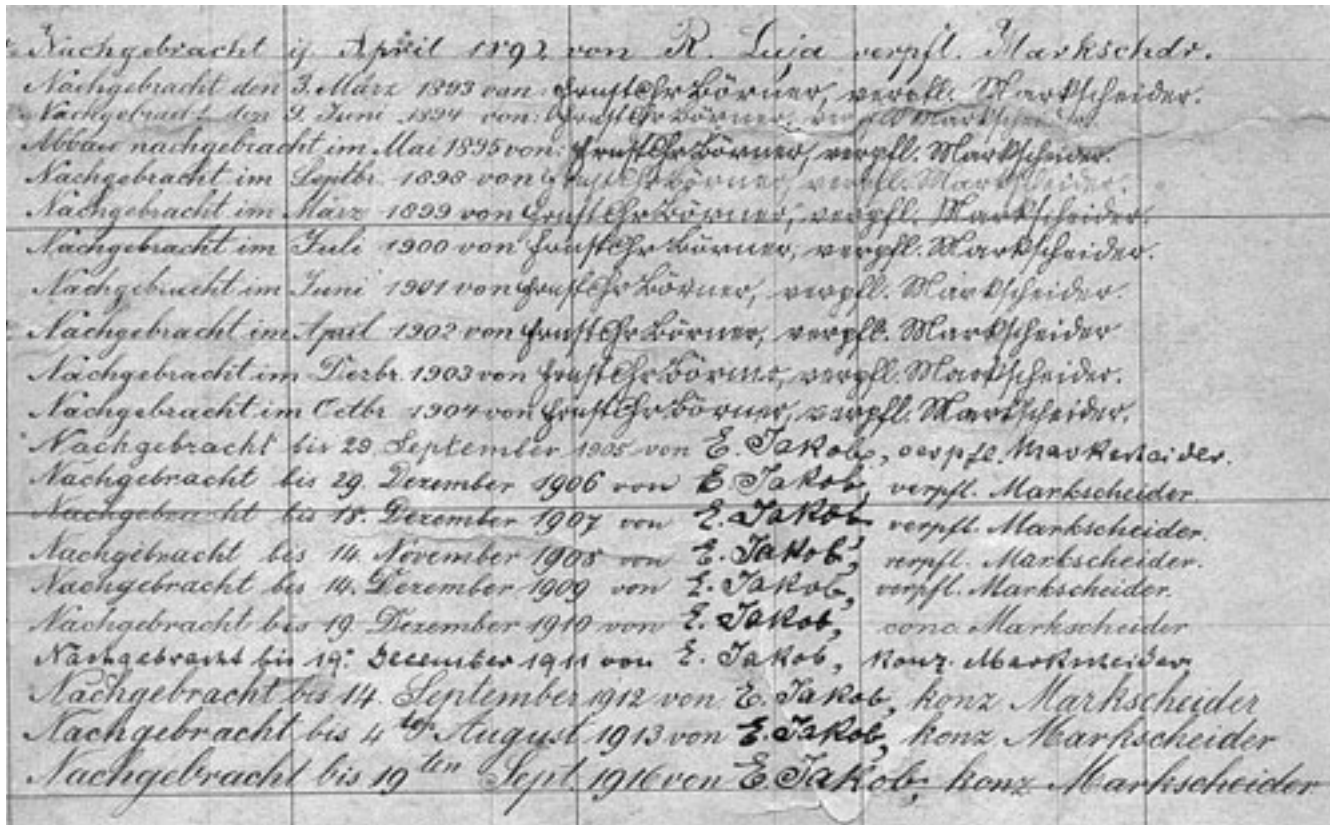 Nachgebracht ij April 1892 von R. Luja verpfl. Markschdr.
Nachgebracht den 3. März 1893 von: Ernst Chr Börner, verpfl. Markscheider.
Nachgebracht den 9. Juni 1894 von: Ernst Chr Börner, verpfl. Markscheider.
Abbau nachgebracht im Mai 1895 von: Ernst Chr Börner, verpfl. Markscheider.
Nachgebracht im Septbr. 1898 von Ernst Chr Börner, verpfl. Markscheider.
Nachgebracht im März 1899 von Ernst Chr Börner, verpfl. Markscheider.
Nachgebracht im Juli 1900 von Ernst Chr Börner, verpfl. Markscheider.
Nachgebracht im Juni 1901 von Ernst Chr Börner, verpfl. Markscheider.
Nachgebracht im April 1902 von Ernst Chr Börner, verpfl. Markscheider
Nachgebracht im Dezbr. 1903 von Ernst Chr Börner, verpfl. Markscheider.
Nachgebracht im Octbr 1904 von Ernst Chr Börner, verpfl. Markscheider.
Nachgebracht bis 29. September 1905 von E. Jakob, verpfl. Markscheider.
Nachgebracht bis 29. Dezember 1906 von E. Jakob, verpfl. Markscheider.
Nachgebracht bis 18. Dezember 1907 von E. Jakob, verpfl. Markscheider.
Nachgebracht bis 14. November 1908 von E. Jakob, verpfl. Markscheider.
Nachgebracht bis 14. Dezember 1909 von E. Jakob, verpfl. Markscheider.
Nachgebracht bis 19. Dezember 1910 von E. Jakob, conc. Markscheider
Nachgebracht bis 19. December 1911 von E. Jakob, konz. Markscheider
Nachgebracht bis 14. September 1912 von E. Jakob, konz Markscheider
Nachgebracht bis 4ten August 1913 von E. Jakob, konz Markscheider
Nachgebracht bis 19ten Sept. 1916 von E. Jakob, konz Markscheider